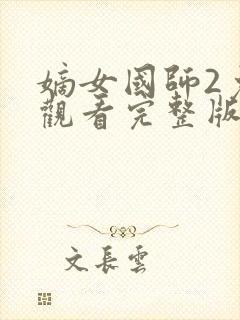 嫡女國師2
觀看完整版
文長雲